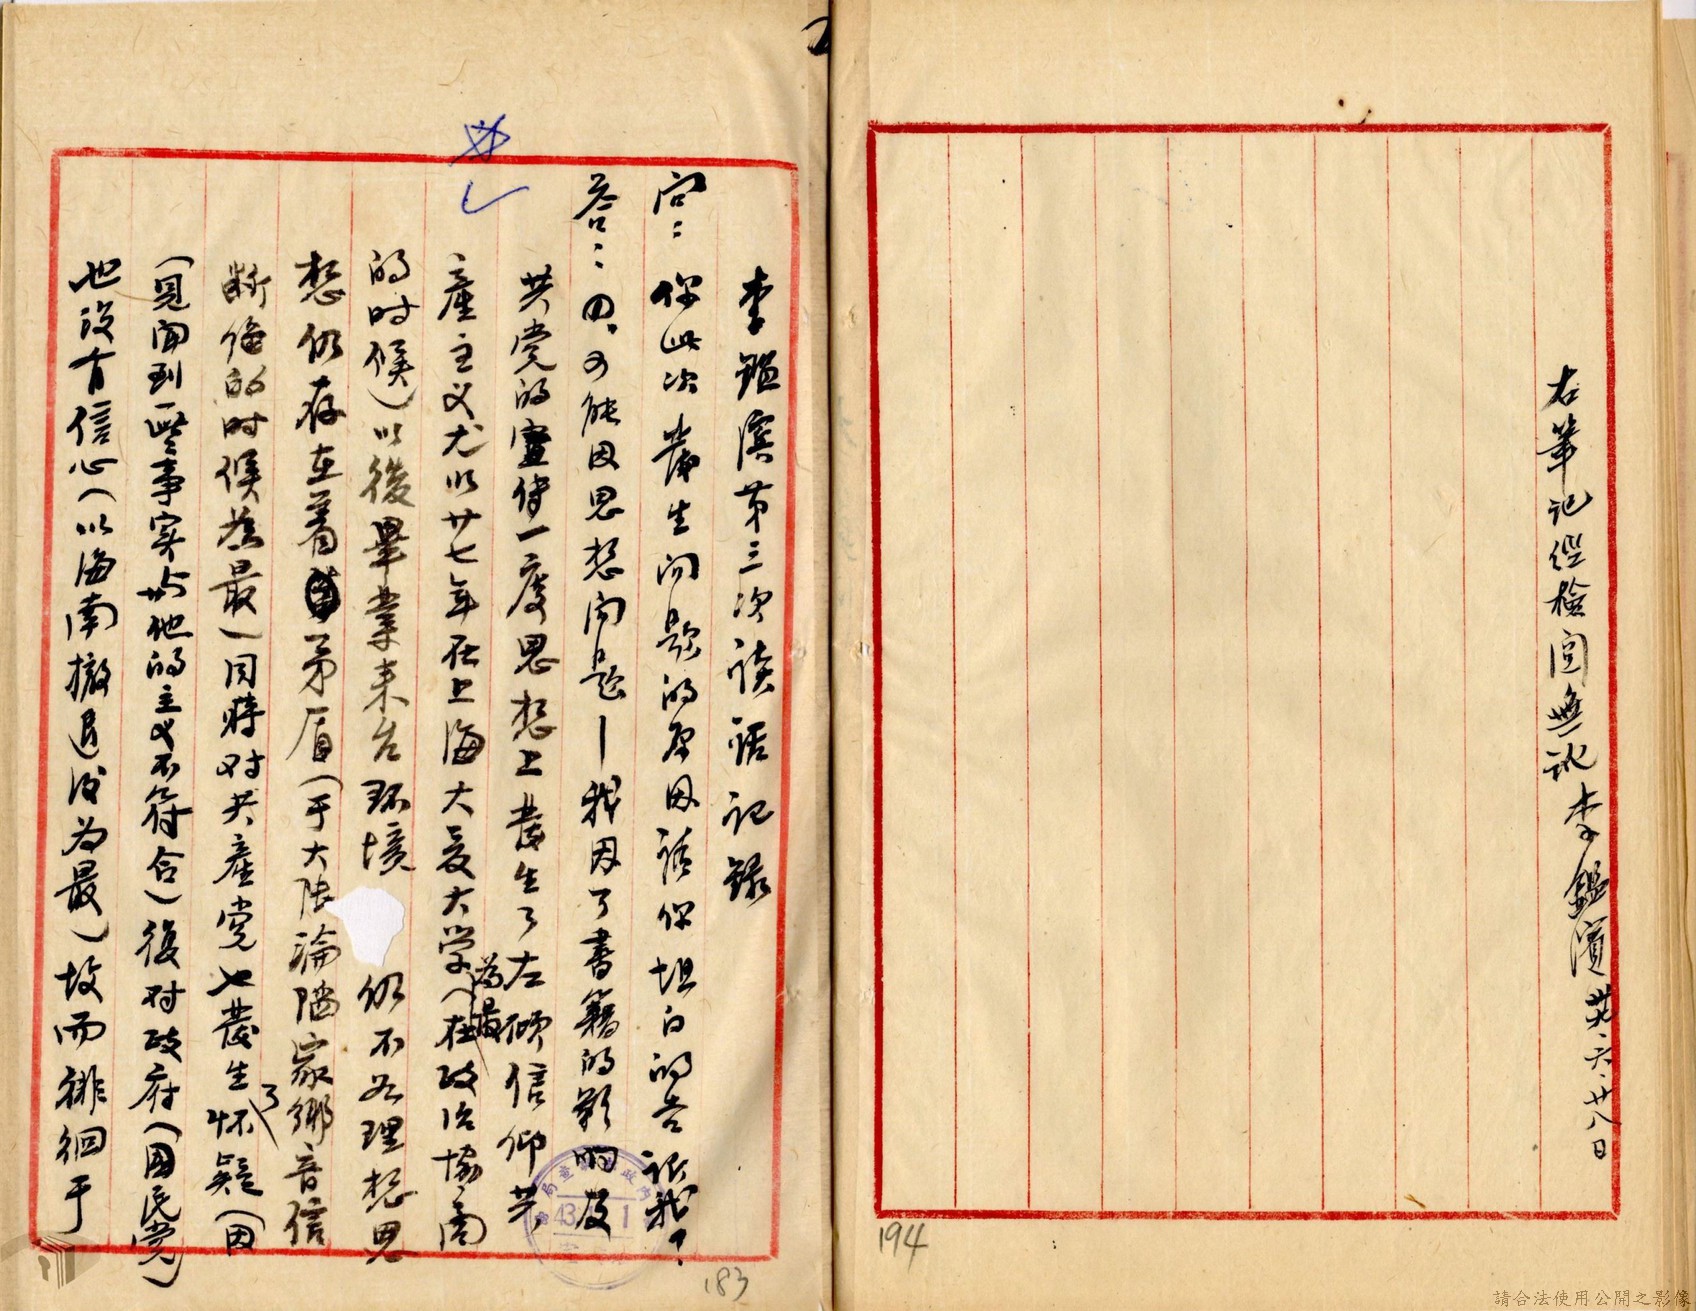 右筆記經檢閱無訛 李鑑濱 卅六、廿八日
194
李鑑濱第三次談話記錄
问：你此次發生问题的原因請你坦白的告訴我！
答：四、可能因思想问题—我因了書籍的影响及
共党的宣传一度思想上發生了左倾信仰共
產主义尤以廿七年在上海大夏大学（在政治協商
為最
的时候）以後畢業来台环境仍不如理想思
想仍存在着矛盾（于大陆淪陷家鄉音信
断绝的时候為最）同時对共產党也發生了怀疑（因
見闻到些事实与他的主义不符合）復对政府（国民党）
也没有信心（以海南撤退後为最）故而徘徊于
43 1
183
請合法使用公開之影像